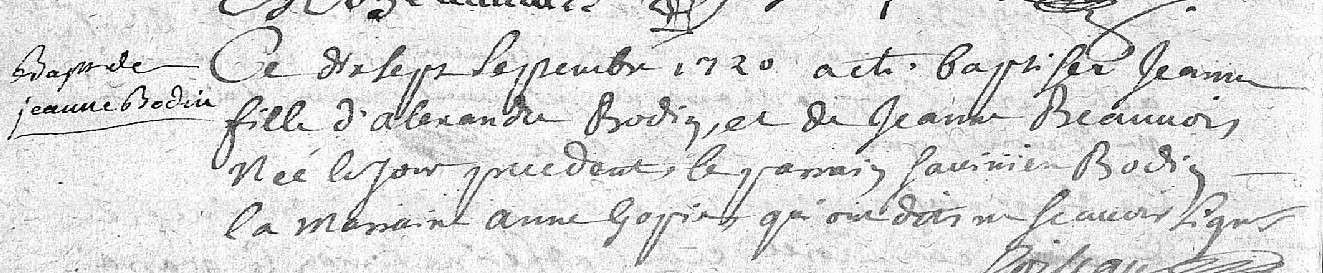 Bapt de
jeanne Bodin
Ce dix sept septembre 1720 a eté baptiser Jeanne
fille d'alexandre Bodin, et de Jeanne Beauvois
Née le jour precedent, le parrain savinien Bodin
la marraine anne qui ont dits ne scauoir signer